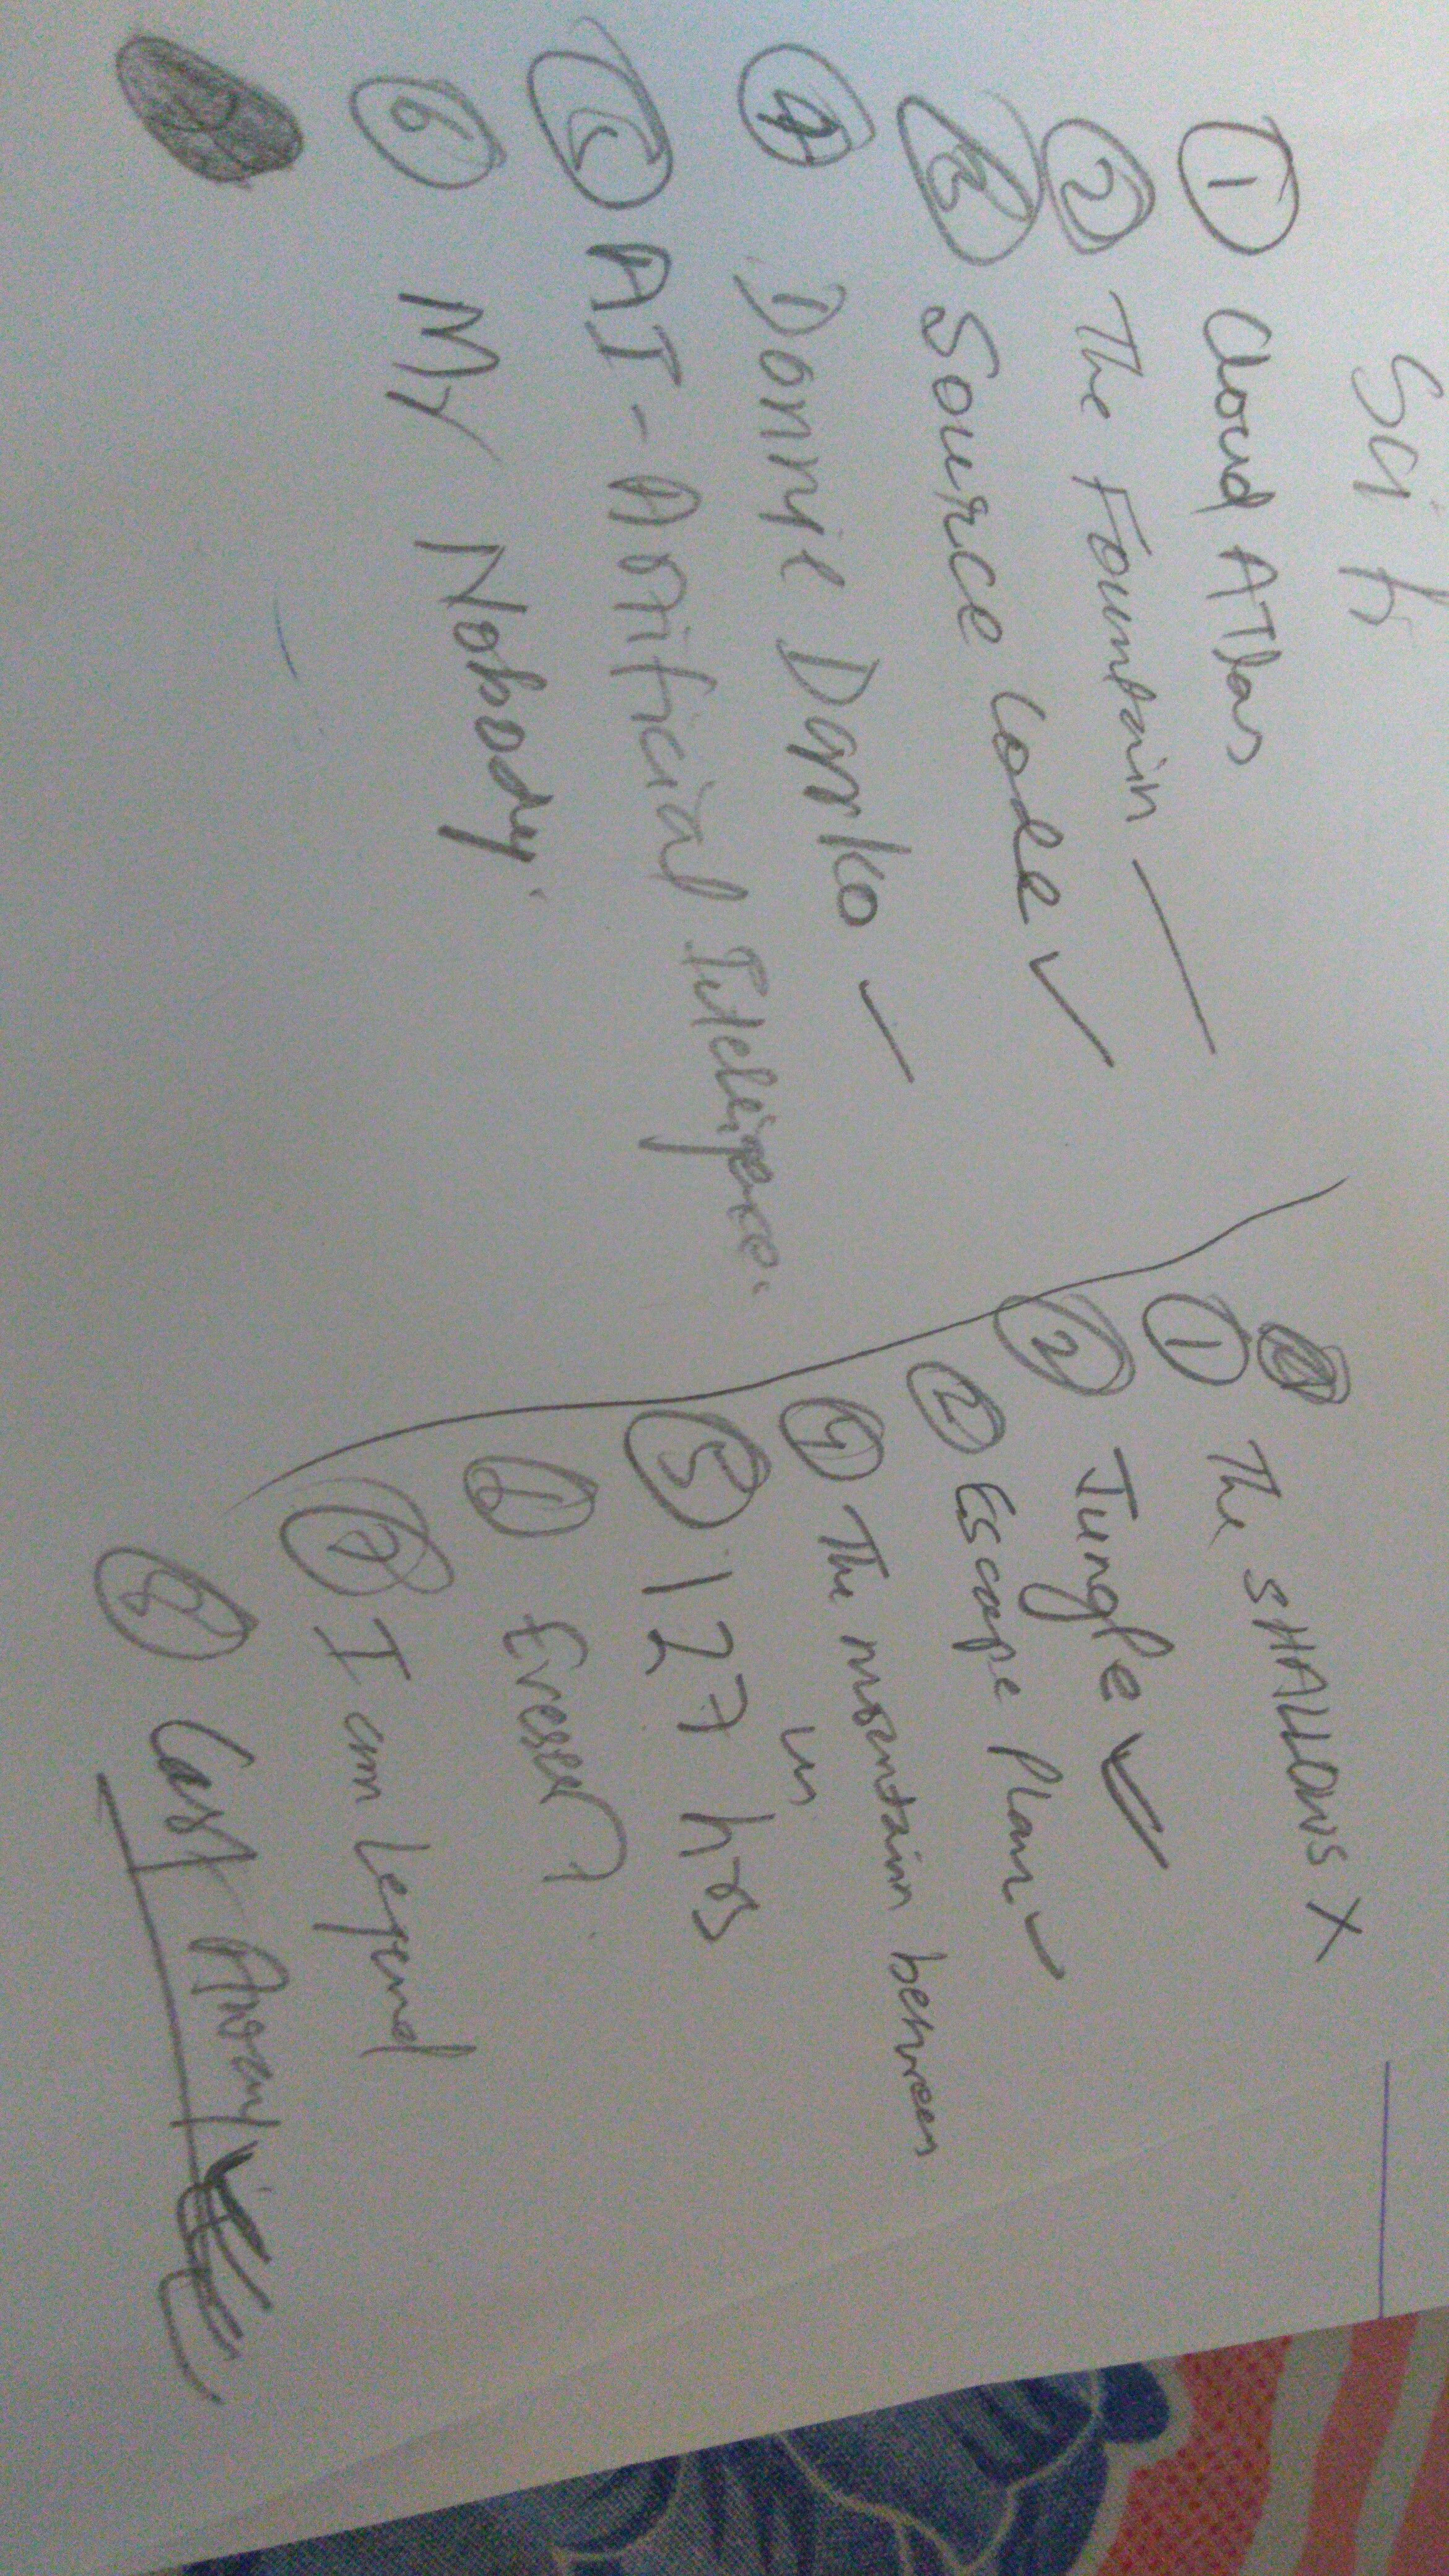 Sci fi
① Cloud Atlas
② The Fountain
③ Source Code ✓
④ Donnie Darko ✓
⑤ AI - Artificial Intelligence.
⑥ Mr Nobody.
① The SHALLOWS X
② Jungle ✓
② Escape Plan ✓
④ The mountain between
us
⑤ 127 hrs
⑥ Everest?
⑦ I am Legend
⑧ Cast Away ✓